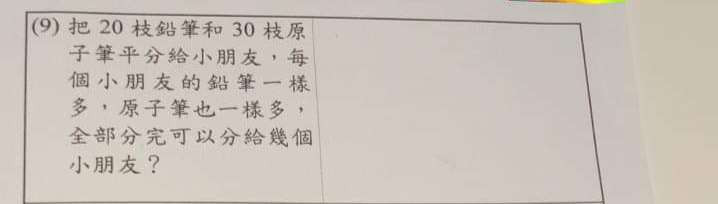 (9) 把 20 枝鉛筆和 30 枝原
子筆平分給小朋友，每
個小朋友的鉛筆一樣
多，原子筆也一樣多，
全部分完可以分給幾個
小朋友？